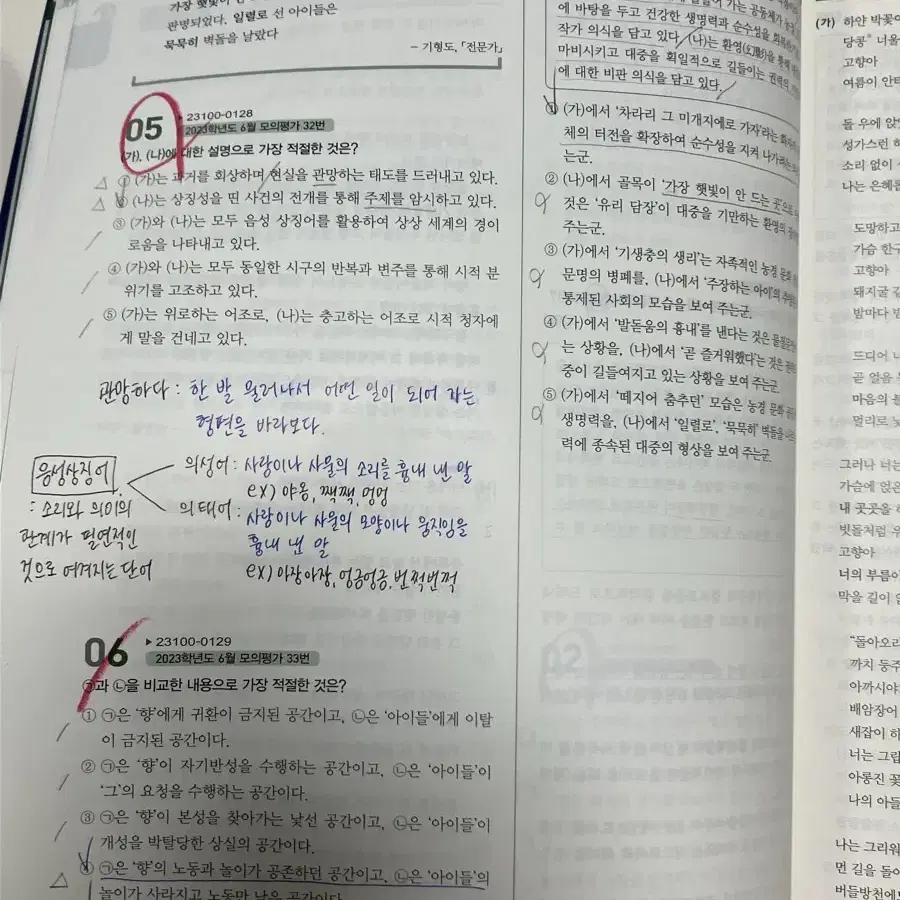 가장 햇빛이 안
판명되었다. 일렬로 선 아이들은
묵묵히 벽돌을 날랐다
- 기형도, 「전문가」
05
▶ 23100-0128
2023학년도 6월 모의평가 32번
(가), (나)에 대한 설명으로 가장 적절한 것은?
① (가)는 과거를 회상하며 현실을 관망하는 태도를 드러내고 있다.
② (나)는 상징성을 띤 사건의 전개를 통해 주제를 암시하고 있다.
③ (가)와 (나)는 모두 음성 상징어를 활용하여 상상 세계의 경이
로움을 나타내고 있다.
④ (가)와 (나)는 모두 동일한 시구의 반복과 변주를 통해 시적 분
위기를 고조하고 있다.
⑤ (가)는 위로하는 어조로, (나)는 충고하는 어조로 시적 청자에
게 말을 건네고 있다.
관망하다 : 한 발 물러나서 어떤 일이 되어 가는
형편을 바라보다.
음성상징어
: 소리와 의미의
관계가 필연적인
것으로 여겨지는 단어
의성어 : 사람이나 사물의 소리를 흉내 낸 말
ex) 야옹, 짹짹, 멍멍
의태어 : 사람이나 사물의 모양이나 움직임을
흉내 낸 말
ex) 아장아장, 엉금엉금, 번쩍번쩍
06
▶ 23100-0129
2023학년도 6월 모의평가 33번
㉠과 ㉡을 비교한 내용으로 가장 적절한 것은?
① ㉠은 '향'에게 귀환이 금지된 공간이고, ㉡은 '아이들'에게 이탈
이 금지된 공간이다.
② ㉠은 '향'이 자기반성을 수행하는 공간이고, ㉡은 '아이들'이
'그'의 요청을 수행하는 공간이다.
③ ㉠은 '향'이 본성을 찾아가는 낯선 공간이고, ㉡은 '아이들'이
개성을 박탈당한 상실의 공간이다.
④ ㉠은 '향'의 노동과 놀이가 공존하던 공간이고, ㉡은 '아이들'의
놀이가 사라지고 노동만 남은 공간이다.
에 바탕을 두고 건강한 생명력과 순수성을
작가 의식을 담고 있다. (나)는 환영(幻影)을 통해
마비시키고 대중을 획일적으로 길들이는 권력의
에 대한 비판 의식을 담고 있다.
① (가)에서 '차라리 그 미개지에로 가자'라는
체의 터전을 확장하여 순수성을 지켜 나가려는
는군.
② (나)에서 골목이 '가장 햇빛이 안 드는 곳'으로
것은 '유리 담장'이 대중을 기만하는 환영의
주는군.
③ (가)에서 '기생충의 생리'는 자족적인 농경 문화
문명의 병폐를, (나)에서 '주장하는 아이'의
통제된 사회의 모습을 보여 주는군.
④ (가)에서 '발돋움의 흉내'를 낸다는 것은
는 상황을, (나)에서 '곧 즐거워했다'는 것은
중이 길들여지고 있는 상황을 보여 주는군.
⑤ (가)에서 '떼지어 춤추던' 모습은 농경 문화
생명력을, (나)에서 '일렬로', '묵묵히' 벽돌을
력에 종속된 대중의 형상을 보여 주는군.
(가) 하얀 박꽃이
당콩 너울
고향아
여름이 안타
돌 우에 앉
성가스런
소리 없이
나는 은혜
도망하고
가슴 한
고향아
돼지굴
밤마다
드디어
곧 얼음
마음의
멀리로
그러나 너는
가슴에 얹은
내 곳곳을
빗돌처럼 우
고향아
너의 부름이
막을 길이
"돌아오
까치 둥주
아까시야
배암장어
새잡이 하
너는 그립
아롱진 꽃
나의 아들
나는 그리워
먼 길을 돌
버들방천에